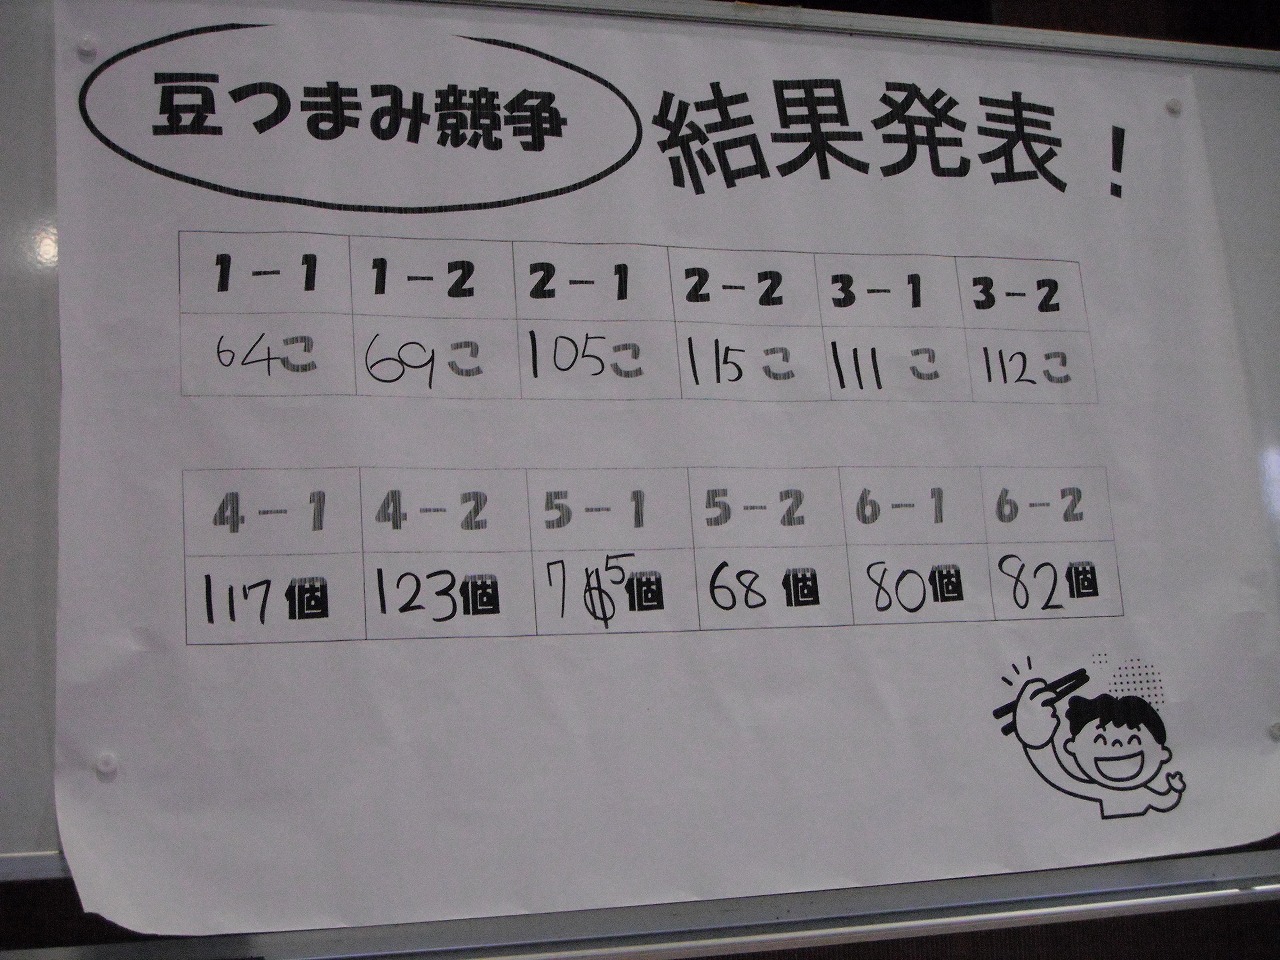 豆つまみ競争 結果発表!
1-1 1-2 2-1 2-2 3-1 3-2
64こ 69こ 105こ 115こ 111こ 112こ
4-1 4-2 5-1 5-2 6-1 6-2
117個 123個 75個 68個 80個 82個